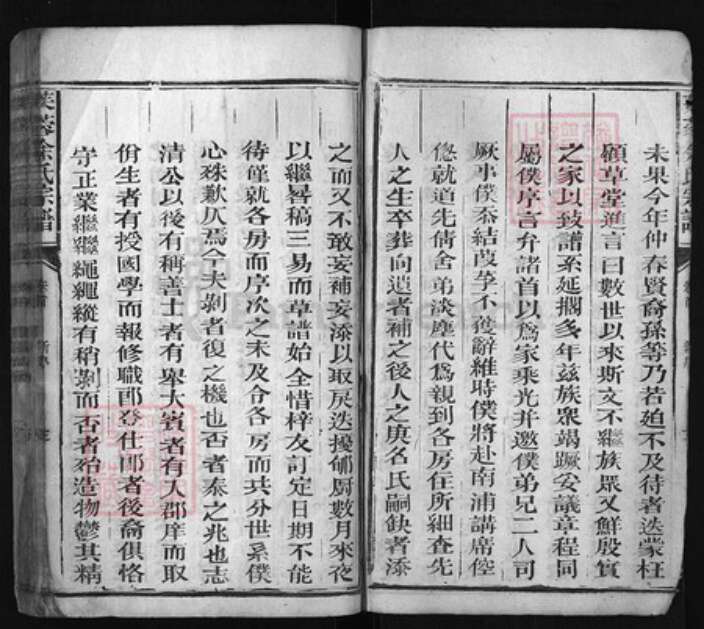 未果今年仲春賢裔孫等乃若廹不及待者迭蒙枉
顧草堂進言曰數世以來斯文不繼族眾又鮮殷實
之家以致譜系延擱多年兹族眾竭蹶安議章程同
屬僕序言弁諸首以為家乘光并邀僕弟兄二人司
厥事僕忝結葭莩不獲辭維時僕將赴南浦講席倥
偬就道先倩舍弟淡塵代為親到各房在所細查先
人之生卒葬向遺者補之後人之庚名氏嗣缺者添
之而又不敢妄補妄添以取戾迭擾郇厨數月來夜
以繼晷稿三易而草譜始全惜梓友訂定日期不能
待僅就各房而序次之未及令各房而共分世系僕
心殊歉仄焉今夫剝者復之機也否者泰之兆也志
清公以後有稱善士者有舉大賓者有入郡庠而取
佾生者有授國學而報修職郎登仕郎者後裔俱恪
守正業繼繼繩繩縱有稍剝而否者殆造物鬱其精
芙蓉徐氏宗譜
卷首